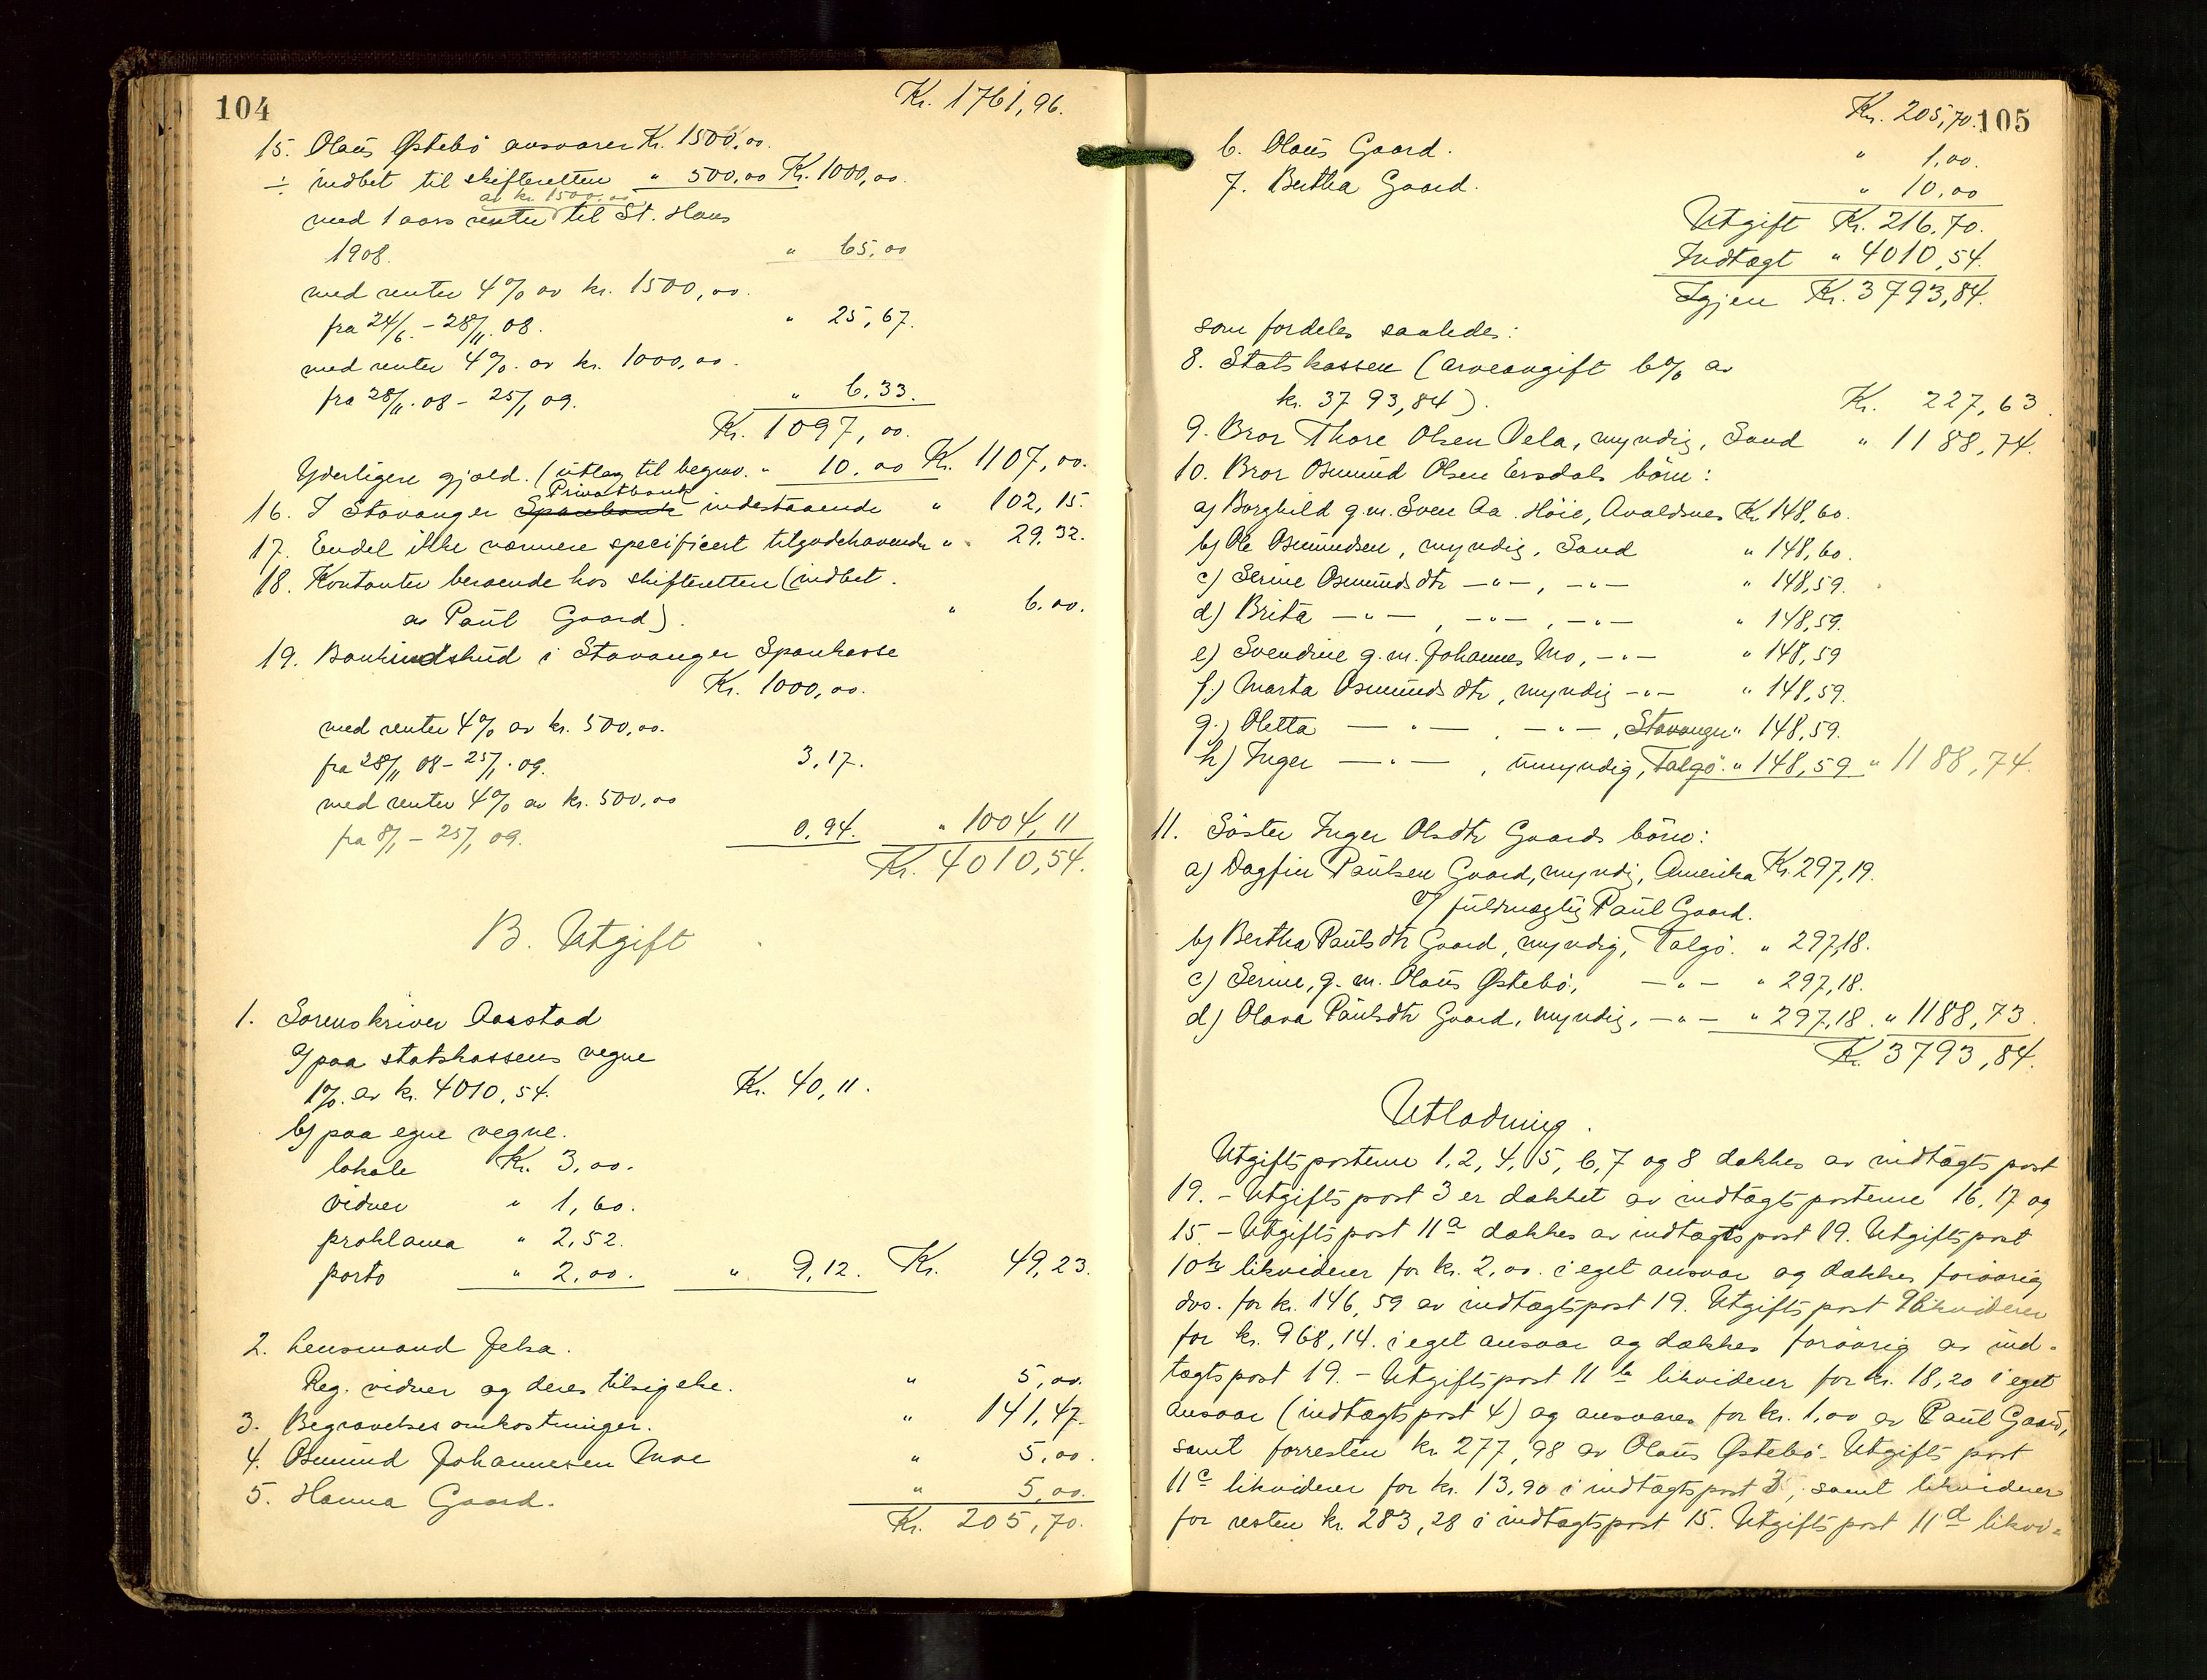 104
Kr. 1761,96.
15. Olaus Østebö ansvarer Kr. 1500,00.
÷ indbet til skifteretten " 500,00 Kr. 1000,00.
av kr. 1500,00
med 1 aars renter til St. Hans
1908. " 65,00
med renter 4% av kr. 1500,00.
fra 24/6 - 28/11 08. " 25,67.
med renter 4% av kr. 1000,00.
fra 28/11 08 - 25/1 09. " 6,33.
Kr. 1097,00.
Yderligere gjæld. (utlæg til begrav. " 10,00 Kr. 1107,00.
Privatbank
16. I Stavanger Sparebank indestaaende " 102,15.
17. Endel ikke nærmere specificert tilgodehavende " 29,32.
18. Kontanter beroende hos skifteretten (indbet.
av Paul Gaard). " 6,00.
19. Bankindskud i Stavanger Sparekasse
Kr. 1000,00.
med renter 4% av kr. 500,00.
fra 28/11 08 - 25/1 09. 3,17.
med renter 4% av kr. 500,00
fra 8/1 - 25/1 09. 0,94. " 1004,11
Kr. 4010,54.
B. Utgift
1. Sorenskriver Aarstad
a) paa statskassens vegne
1% av kr. 4010,54. Kr. 40,11.
b) paa egne vegne.
lokale Kr. 3,00.
vidner " 1,60.
proklama " 2,52.
porto " 2,00. " 9,12. Kr. 49,23.
2. Lensmand Jelsa.
Reg. vidner og deres tilsigelse. " 5,00.
3. Begravelsesomkostninger. " 141,47.
4. Osmund Johannesen Moe " 5,00.
5. Hanna Gaard. " 5,00.
Kr. 205,70.
Kr. 205,70. 105
6. Olaus Gaard. " 1,00.
7. Bertha Gaard. " 10,00
Utgift Kr. 216,70.
Indtægt " 4010,54.
Igjen Kr. 3793,84.
som fordeles saaledes:
8. Statskassen (arveavgift 6% av
kr. 3793,84). Kr. 227,63.
9. Bror Thore Olsen Vela, myndig, Sand " 1188,74.
10. Bror Osmund Olsen Ersdals börn:
a) Borghild g.m. Sven Aa. Höie, Avaldsnes Kr. 148,60.
b) Ole Osmundsen, myndig, Sand " 148,60.
c) Serine Osmundsdtr -"-, -"- " 148,59.
d) Brita -"-, -"-, -"- " 148,59.
e) Svendine g.m. Johannes Mo, -"- " 148,59
f) Marta Osmundsdtr, myndig -"- " 148,59.
g) Oletta -"-, -"-, Stavanger " 148,59.
h) Inger -"-, umyndig, Talgö. " 148,59 " 1188,74.
11. Söster Inger Olsdtr Gaards börn:
a) Dagfin Paulsen Gaard, myndig, Amerika Kr. 297,19.
v/ fuldmægtig Paul Gaard.
b) Bertha Paulsdtr Gaard, myndig, Talgö. " 297,18.
c) Serine, g.m. Olaus Østebö, -"- " 297,18.
d) Olava Paulsdtr Gaard, myndig, -"- " 297,18. " 1188,73.
Kr. 3793,84.
Utlodning.
Utgiftsposterne 1, 2, 4, 5, 6, 7 og 8 dækkes av indtægtspost
19. - Utgiftspost 3 er dækket av indtægtsposterne 16, 17 og
15. - Utgiftspost 11a dækkes av indtægtspost 19. Utgiftspost
10h likviderer for kr. 2,00. i eget ansvar og dækkes forövrig
dvs. for kr. 146,59 av indtægtspost 19. Utgiftspost 9 likviderer
for kr. 968,14. i eget ansvar og dækkes forövrig av ind-
tægtspost 19. - Utgiftspost 11b likviderer for kr. 18,20 i eget
ansvar (indtægtspost 4) og ansvares for kr. 1,00 av Paul Gaard,
samt forresten kr. 277,98 av Olaus Østebö. Utgiftspost
11c likviderer for kr. 13,90 i indtægtspost 3, samt likviderer
for resten kr. 283,28 i indtægtspost 15. Utgiftspost 11d likvi-